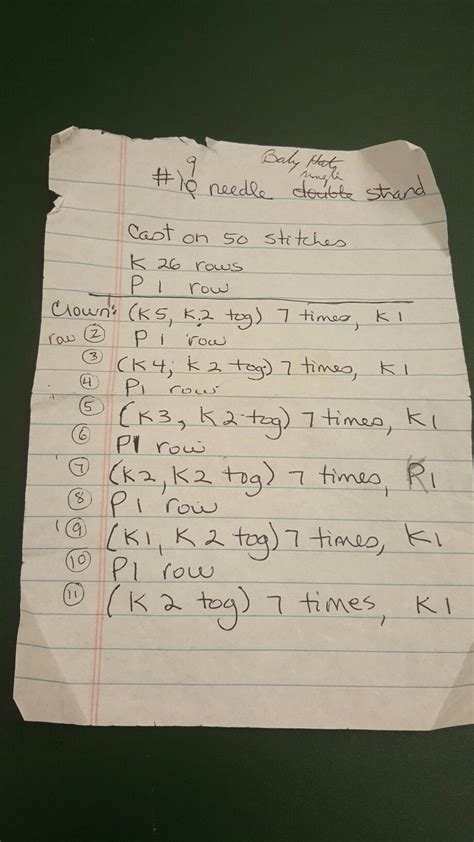 Baby Hat
9 single
#10 needle double strand
Cast on 50 stitches
K 26 rows
P 1 row
Crown: (K5, K2 tog) 7 times, K1
row ② P 1 row
③ (K4, K2 tog) 7 times, K1
④ P1 row
⑤ (K3, K2 tog) 7 times, K1
⑥ P1 row
⑦ (K2, K2 tog) 7 times, K1
⑧ P 1 row
⑨ (K1, K2 tog) 7 times, K1
⑩ P1 row
⑪ (K 2 tog) 7 times, K1